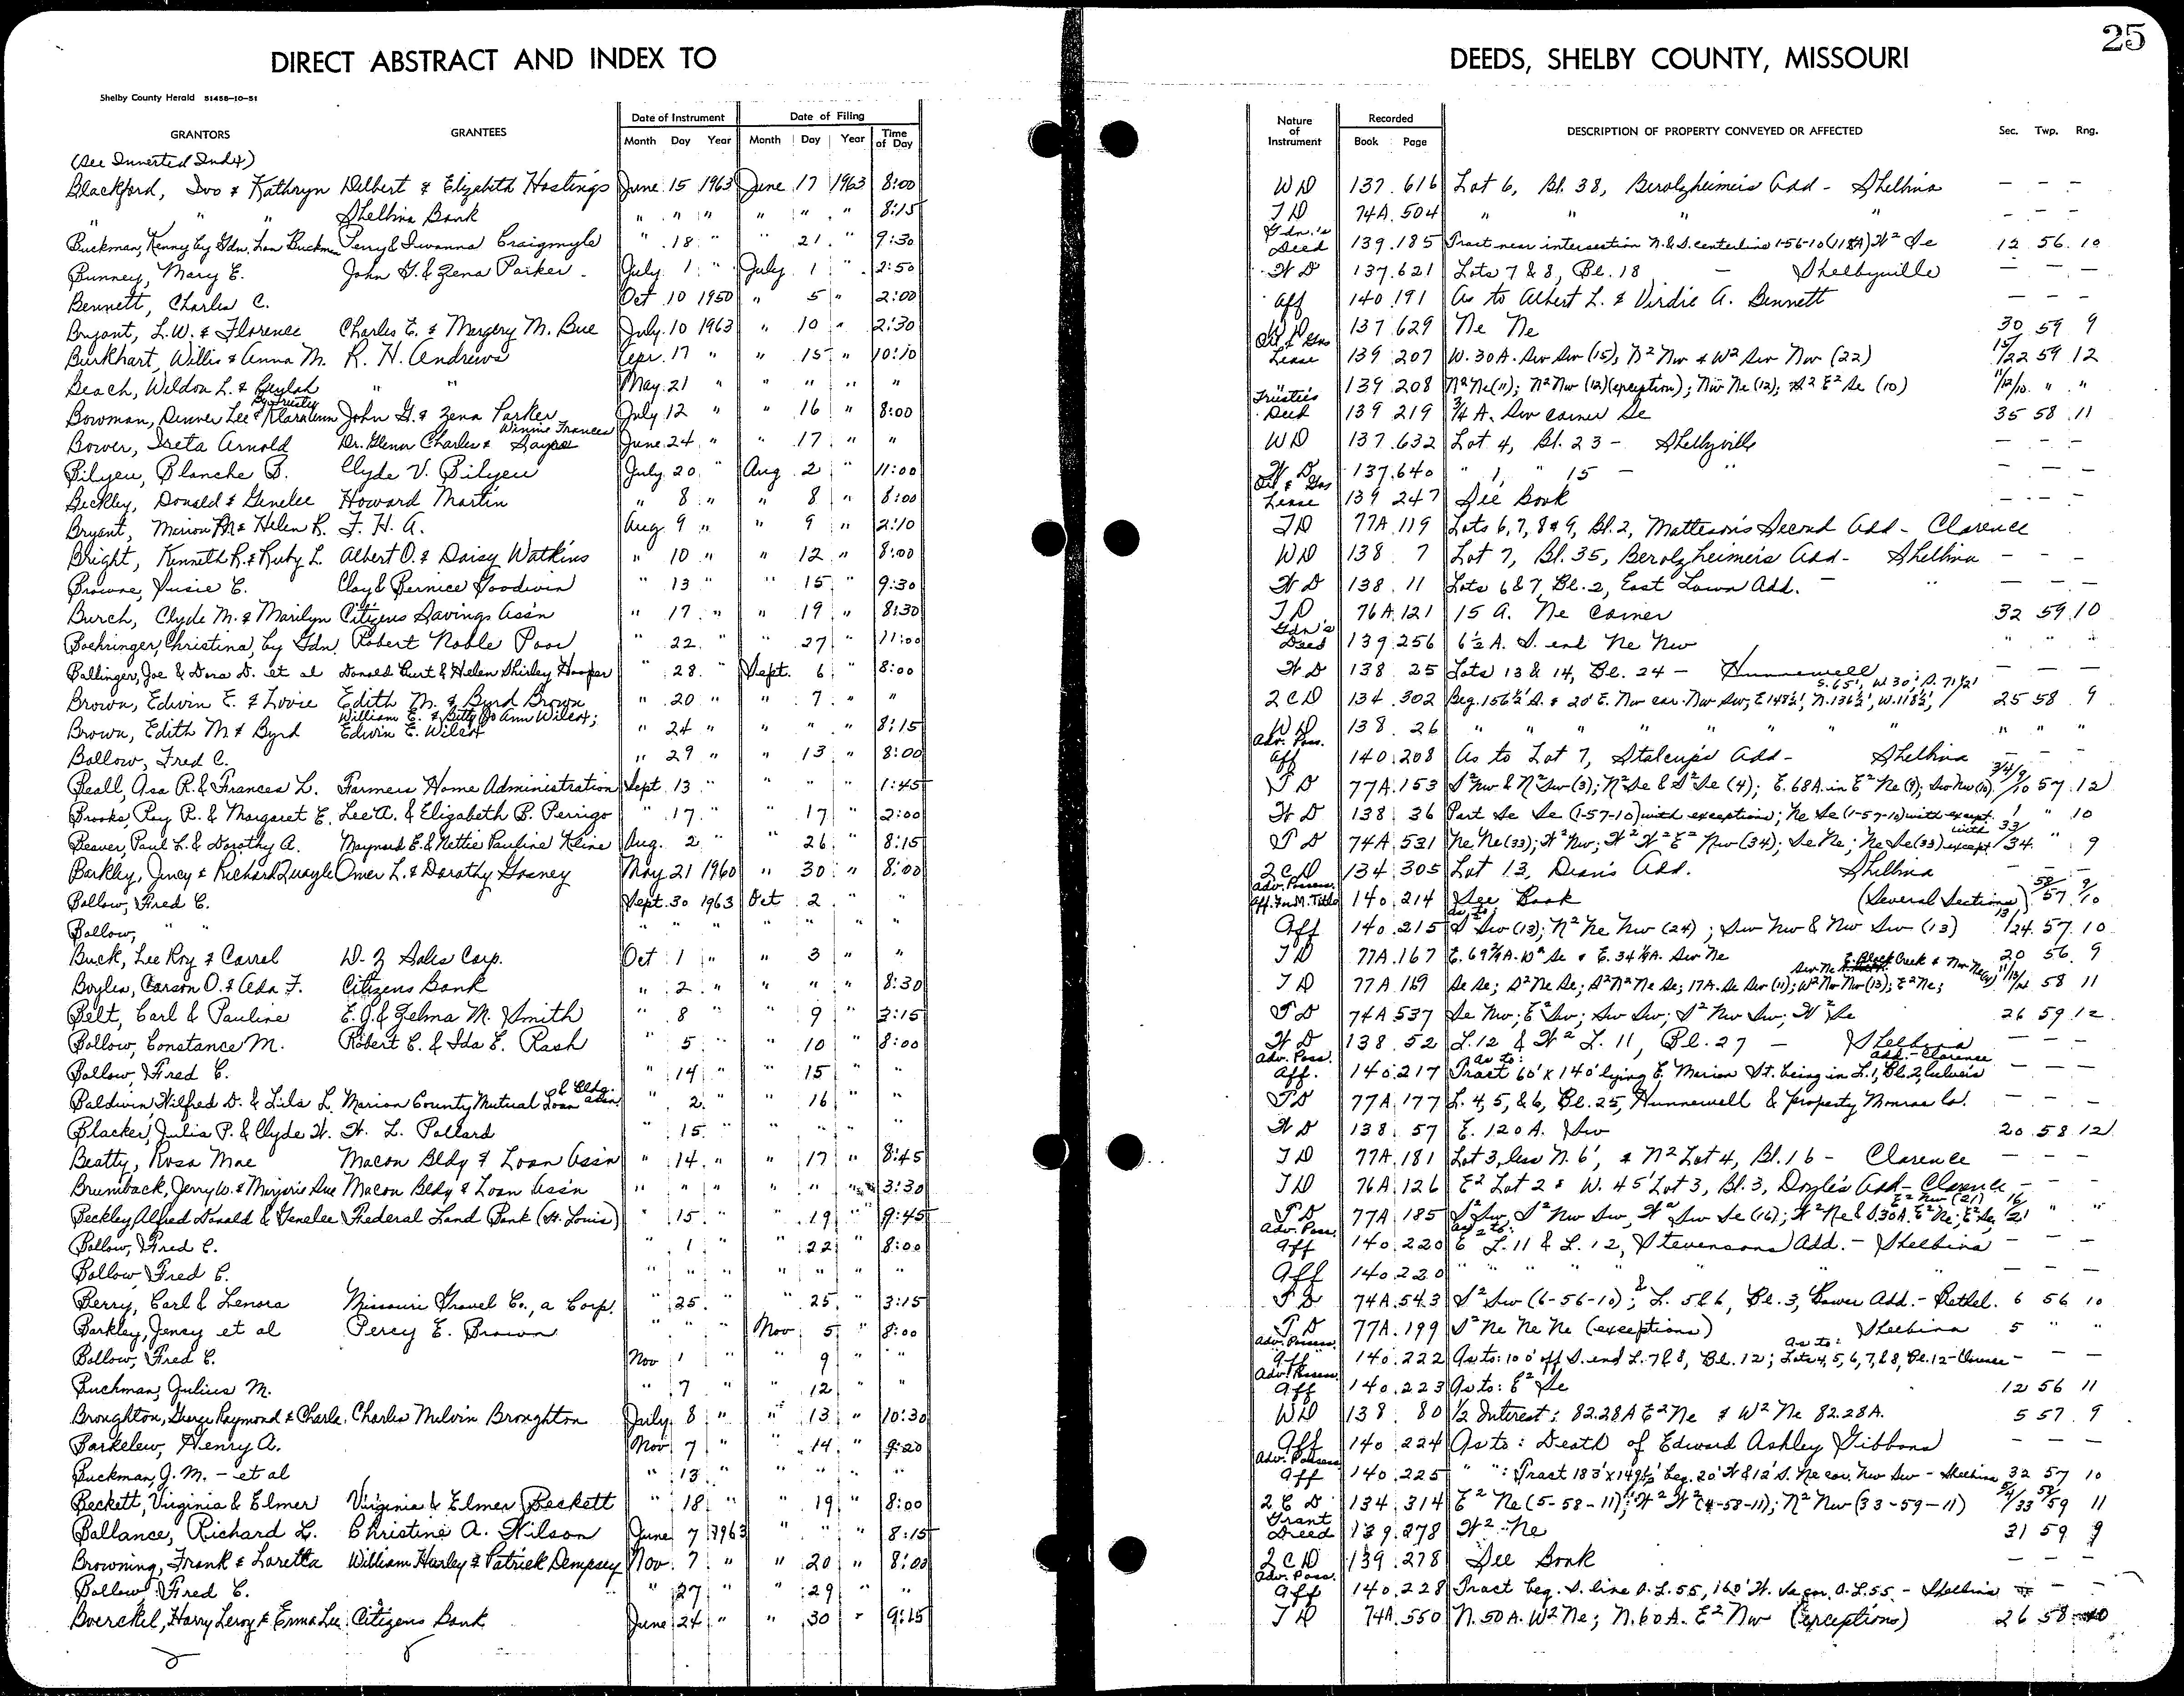 25
DIRECT ABSTRACT AND INDEX TO DEEDS, SHELBY COUNTY, MISSOURI
Shelby County Herald 51458-10-51
GRANTORS GRANTEES Date of Instrument Month Day Year Date of Filing Month Day Year Time of Day Nature of Instrument Recorded Book Page DESCRIPTION OF PROPERTY CONVEYED OR AFFECTED Sec. Twp. Rng.
(See Inverted Index)
Blackford, Ivo & Kathryn Delbert & Elizabeth Hastings June 15 1963 June 17 1963 8:00 WD 137 616 Lot 6, Bl. 38, Berolzheimer's Add - Shelbina — — —
" " " Shelbina Bank " " " " " " 8:15 TD 74A 504 " " " " — — —
Buckman, Kenny by Gdn. Leon Buckman Perry & Iwanna Craigmyle " 18 " " 21 " 9:30 Gdn.'s Deed 139 185 Tract near intersection N. & S. centerline 1-56-10 (118A) W² Se 12 56 10
Bunney, Mary E. John G. & Zena Parker July 1 " July 1 " 2:50 WD 137 621 Lots 7 & 8, Bl. 18 — Shelbyville — — —
Bennett, Charles C. Oct 10 1950 " 5 " 2:00 Aff 140 191 As to Albert L. & Virdie A. Bennett — — —
Bryant, L.W. & Florence Charles E. & Margery M. Bue July 10 1963 " 10 " 2:30 WD 137 629 Ne Ne 30 59 9
Burkhart, Willis & Anna M. R. H. Andrews Apr. 17 " " 15 " 10:10 Oil & Gas Lease 139 207 W. 30 A. Sw Sw (15); N² Nw & W² Sw Nw (22) 15/22 59 12
Beach, Weldon L. & Beulah " " May 21 " " " " " 139 208 N² Ne (11); N² Nw (12) (exception); Nw Ne (12); S² E² Se (10) 11/12/10 " "
Bowman, Denver Lee & Klara Ann By Trustee John G. & Zena Parker July 12 " " 16 " 8:00 Trustee's Deed 139 219 3/4 A. Sw corner Se 35 58 11
Bower, Ireta Arnold Dr. Glenn Charles & Winnie Frances Sayre June 24 " " 17 " " WD 137 632 Lot 4, Bl. 23 - Shelbyville — — —
Bilyeu, Blanche B. Clyde V. Bilyeu July 20 " Aug 2 " 11:00 WD 137 640 " 1, " 15 — " — — —
Beckley, Donald & Genelee Howard Martin " 8 " " 8 " 8:00 Oil & Gas Lease 139 247 See Book — — —
Bryant, Marion M & Helen R. F. H. A. Aug 9 " " 9 " 2:10 TD 77A 119 Lots 6, 7, 8 & 9, Bl. 2, Matteson's Second Add - Clarence
Bright, Kenneth R. & Ruby L. Albert O. & Daisy Watkins " 10 " " 12 " 8:00 WD 138 7 Lot 7, Bl. 35, Berolzheimer's Add - Shelbina — — —
Browne, Susie C. Cloyd & Bernice Goodwin " 13 " " 15 " 9:30 WD 138 11 Lots 6 & 7, Bl. 2, East Lawn Add. — " — — —
Burch, Clyde M. & Marilyn Citizens Savings Ass'n " 17 " " 19 " 8:30 TD 76A 121 15 A. Ne Corner 32 59 10
Boehringer, Christina, by Gdn. Robert Noble Poor " 22 " " 27 " 11:00 Gdn's Deed 139 256 6½ A. S. end Ne Nw " " "
Ballinger, Joe & Dora D. et al Donald Burt & Helen Shirley Hooper " 28 " Sept. 6 " 8:00 WD 138 25 Lots 13 & 14, Bl. 24 — Hunnewell — — —
Brown, Edwin E. & Lovie Edith M. & Byrd Brown " 20 " " 7 " " QCD 134 302 Beg. 156½' S. & 20' E. Nw cor. Nw Sw; E 148½', N. 136½', W. 118½', S. 65', W. 30', S. 71½' 25 58 9
Brown, Edith M & Byrd William E. & Betty Jo Ann Wilert; Edwin E. Wilert " 24 " " " " 8:15 WD 138 26 " " " " " " " " " "
Bollow, Fred C. " 29 " " 13 " 8:00 Adv. Poss. Aff 140 208 As to Lot 7, Stalcup's Add - Shelbina — — —
Beall, Asa R. & Frances L. Farmers Home Administration Sept. 13 " " " " 1:45 TD 77A 153 S² Nw & N² Sw (3); N² Se & S² Se (4); E. 68A. in E² Ne (9); Sw Nw (10) 3/4/9/10 57 12
Brooks, Ray R. & Margaret E. Lee A. & Elizabeth B. Perrigo " 17 " " 17 " 2:00 WD 138 36 Part Se Se (1-57-10) with exceptions; Ne Se (1-57-10) with except. 1 " 10
Beaver, Paul L. & Dorothy A. Maynard E. & Nettie Pauline Kline Aug. 2 " " 26 " 8:15 TD 74A 531 Ne Ne (33); W² Nw; W² W² E² Nw (34); Se Ne; Ne Se (33) with except. 33/34 " 9
Barkley, Jency & Richard Quayle Omer L. & Dorothy Gosney May 21 1960 " 30 " 8:00 QCD 134 305 Lot 13, Dean's Add. Shelbina
Bollow, Fred C. Sept. 30 1963 Oct 2 " " Adv. Possess. Aff. In M. Title 140 214 See Book (Several Sections) 58/57 9/10
Bollow, " " " " " " " " " Aff 140 215 as to: S² Sw (13); N² Ne Nw (24); Sw Nw & Nw Sw (13) 13/24 57 10
Buck, Lee Roy & Carrol W-Z Sales Corp. Oct 1 " " 3 " " TD 77A 167 E. 69¾ A. W² Se & E. 34¼ A. Sw Ne 20 56 9
Boylen, Carson O. & Ada F. Citizens Bank " 2 " " " " 8:30 TD 77A 169 Se Se; S² Ne Se; S² N² Ne Se; 17A. Se Sw (11); W² Nw Nw (13); E² Ne; 58 11
Belt, Carl & Pauline E. J. & Zelma M. Smith " 8 " " 9 " 3:15 TD 74A 537 Se Nw; E² Sw; Sw Sw; S² Nw Sw; W² Se 26 59 12
Bollow, Constance M. Robert C. & Ida E. Rash " 5 " " 10 " 8:00 WD 138 52 L. 12 & W² L. 11, Bl. 27 — Shelbina — — —
Bollow, Fred C. " 14 " " 15 " " Adv. Poss. Aff. 140 217 as to: Tract 60' x 140' lying E. Marion St. being in L. 1, Bl. 2, Add. - Clarence — — —
Baldwin, Wilfred D. & Lila L. Marion County Mutual Loan & Bldg. Assn. " 2 " " 16 " " TD 77A 177 L. 4, 5, & 6, Bl. 25, Hunnewell & property Monroe Co. — — —
Blacker, Julia P. & Clyde W. W. L. Pollard " 15 " " " " " WD 138 57 E. 120 A. Sw 20 58 12
Beatty, Rosa Mae Macon Bldg & Loan Ass'n " 14 " " 17 " 8:45 TD 77A 181 Lot 3, less N. 6', & N² Lot 4, Bl. 16 - Clarence — — —
Brumback, Jerry W. & Marjorie Sue Macon Bldg & Loan Ass'n " " " " " " 3:30 TD 76A 126 E² Lot 2 & W. 45' Lot 3, Bl. 3, Doyle's Add - Clarence — — —
Beckley, Alfred Donald & Genelee Federal Land Bank (St. Louis) " 15 " " 19 " 9:45 TD 77A 185 S² Sw, S² Nw Sw, W² Sw Se (16); W² Ne & S. 30 A. E² Ne; E² Se, E² Nw (21) 16/21 " "
Bollow, Fred C. " 1 " " 22 " 8:00 Adv. Poss. Aff 140 220 as to: E² L. 11 & L. 12, Stevensons Add. - Shelbina — — —
Bollow, Fred C. " " " " " " " Aff 140 220 " " " " " " — — —
Berry, Carl & Lenora Missouri Gravel Co., a Corp. " 25 " " 25 " 3:15 TD 74A 543 S² Sw (6-56-10); & L. 5 & 6, Bl. 3, Bower Add. - Bethel. 6 56 10
Barkley, Jency et al Percy E. Brown " " " Nov 5 " 8:00 TD 77A 199 S² Ne Ne Ne (exceptions) Shelbina 5 " "
Bollow, Fred C. Nov 1 " " 9 " " Adv. Possess. Aff 140 222 As to: 100' off S. end L. 7 & 8, Bl. 12; As to: Lots 4, 5, 6, 7, & 8, Bl. 12 - Clarence — — —
Buckman, Julius M. " 7 " " 12 " " Adv. Possess. Aff 140 223 As to: E² Se 12 56 11
Broughton, George Raymond & Charle. Charles Melvin Broughton July 8 " " 13 " 10:30 WD 138 80 1/2 Interest: 82.28A E² Ne & W² Ne 82.28A. 5 57 9
Barkelew, Henry A. Nov 7 " " 14 " 9:20 Aff 140 224 As to: Death of Edward Ashley Gibbons — — —
Buckman, J. M. - et al " 13 " " " " " Adv. Possess Aff 140 225 " ": Tract 183' x 149½' beg. 20' W & 12' S. Ne cor. Nw Sw - Shelbina 32 57 10
Beckett, Virginia & Elmer Virginia & Elmer Beckett " 18 " " 19 " 8:00 QCD 134 314 E² Ne (5-58-11); W² W² (4-58-11); N² Nw (33-59-11) 5/4/33 58/59 11
Ballance, Richard L. Christine A. Wilson June 7 1963 " " " 8:15 Grant Deed 139 278 W² Ne 31 59 9
Browning, Frank & Loretta William Harley & Patrick Dempsey Nov. 7 " " 20 " 8:00 QCD 139 278 See Book — — —
Bollow, Fred C. " 27 " " 29 " " Adv. Poss. Aff 140 228 Tract beg. S. line O.L. 55, 160' W. Se cor. O.L. 55 - Shelbina — —
Boerckel, Harry Leroy & Erma Lee Citizens Bank June 24 " " 30 " 9:15 TD 74A 550 N. 50 A. W² Ne; N. 60 A. E² Nw (exceptions) 26 58 10